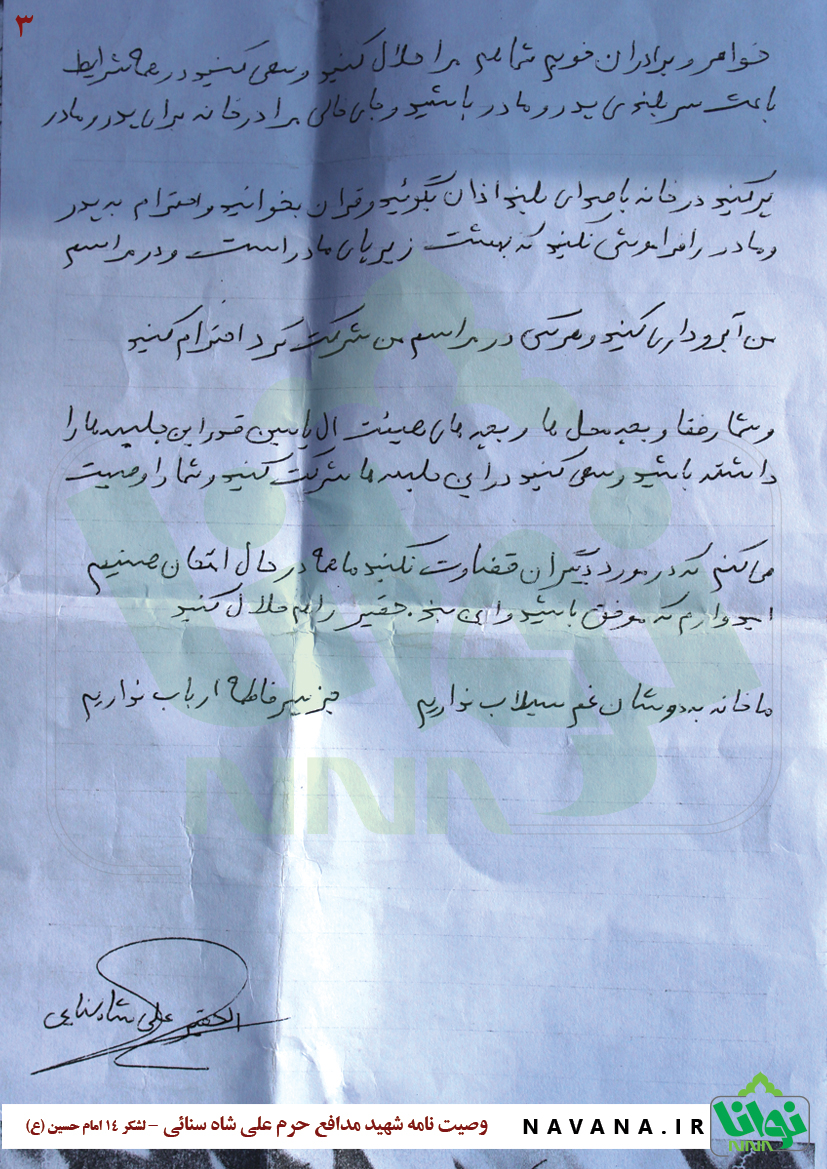 ۳
خواهر و برادران خوبم شما هم مرا حلال کنید و سعی کنید در همه شرایط
باعث سربلندی پدر و مادر باشید و جای خالی مرا در خانه برای پدر و مادر
پر کنید در خانه با صدای بلند اذان بگوئید و قران بخوانید و احترام به پدر
و مادر را فراموش نکنید که بهشت زیر پای مادر است و در مراسم
من آبروداری کنید و هرکس در مراسم من شرکت کرد احترام کنید
و شما رفقا و بچه محل ها و بچه های هیئت ال یاسین قدر این جلسه ها را
داشته باشید و سعی کنید در این جلسه ها شرکت کنید و شما را وصیت
می کنم که در مورد دیگران قضاوت نکنید ما همه در حال امتحان هستیم
امیدوارم که موفق باشید و این بنده حقیر را هم حلال کنید
ما خانه به دوشان غم سیلاب نداریم جز پسر فاطمه ارباب نداریم
الحقیر علی شاه سنایی
وصیت نامه شهید مدافع حرم علی شاه سنائی – لشکر ۱۴ امام حسین (ع)
NAVANA.IR
نوانا
NNNA